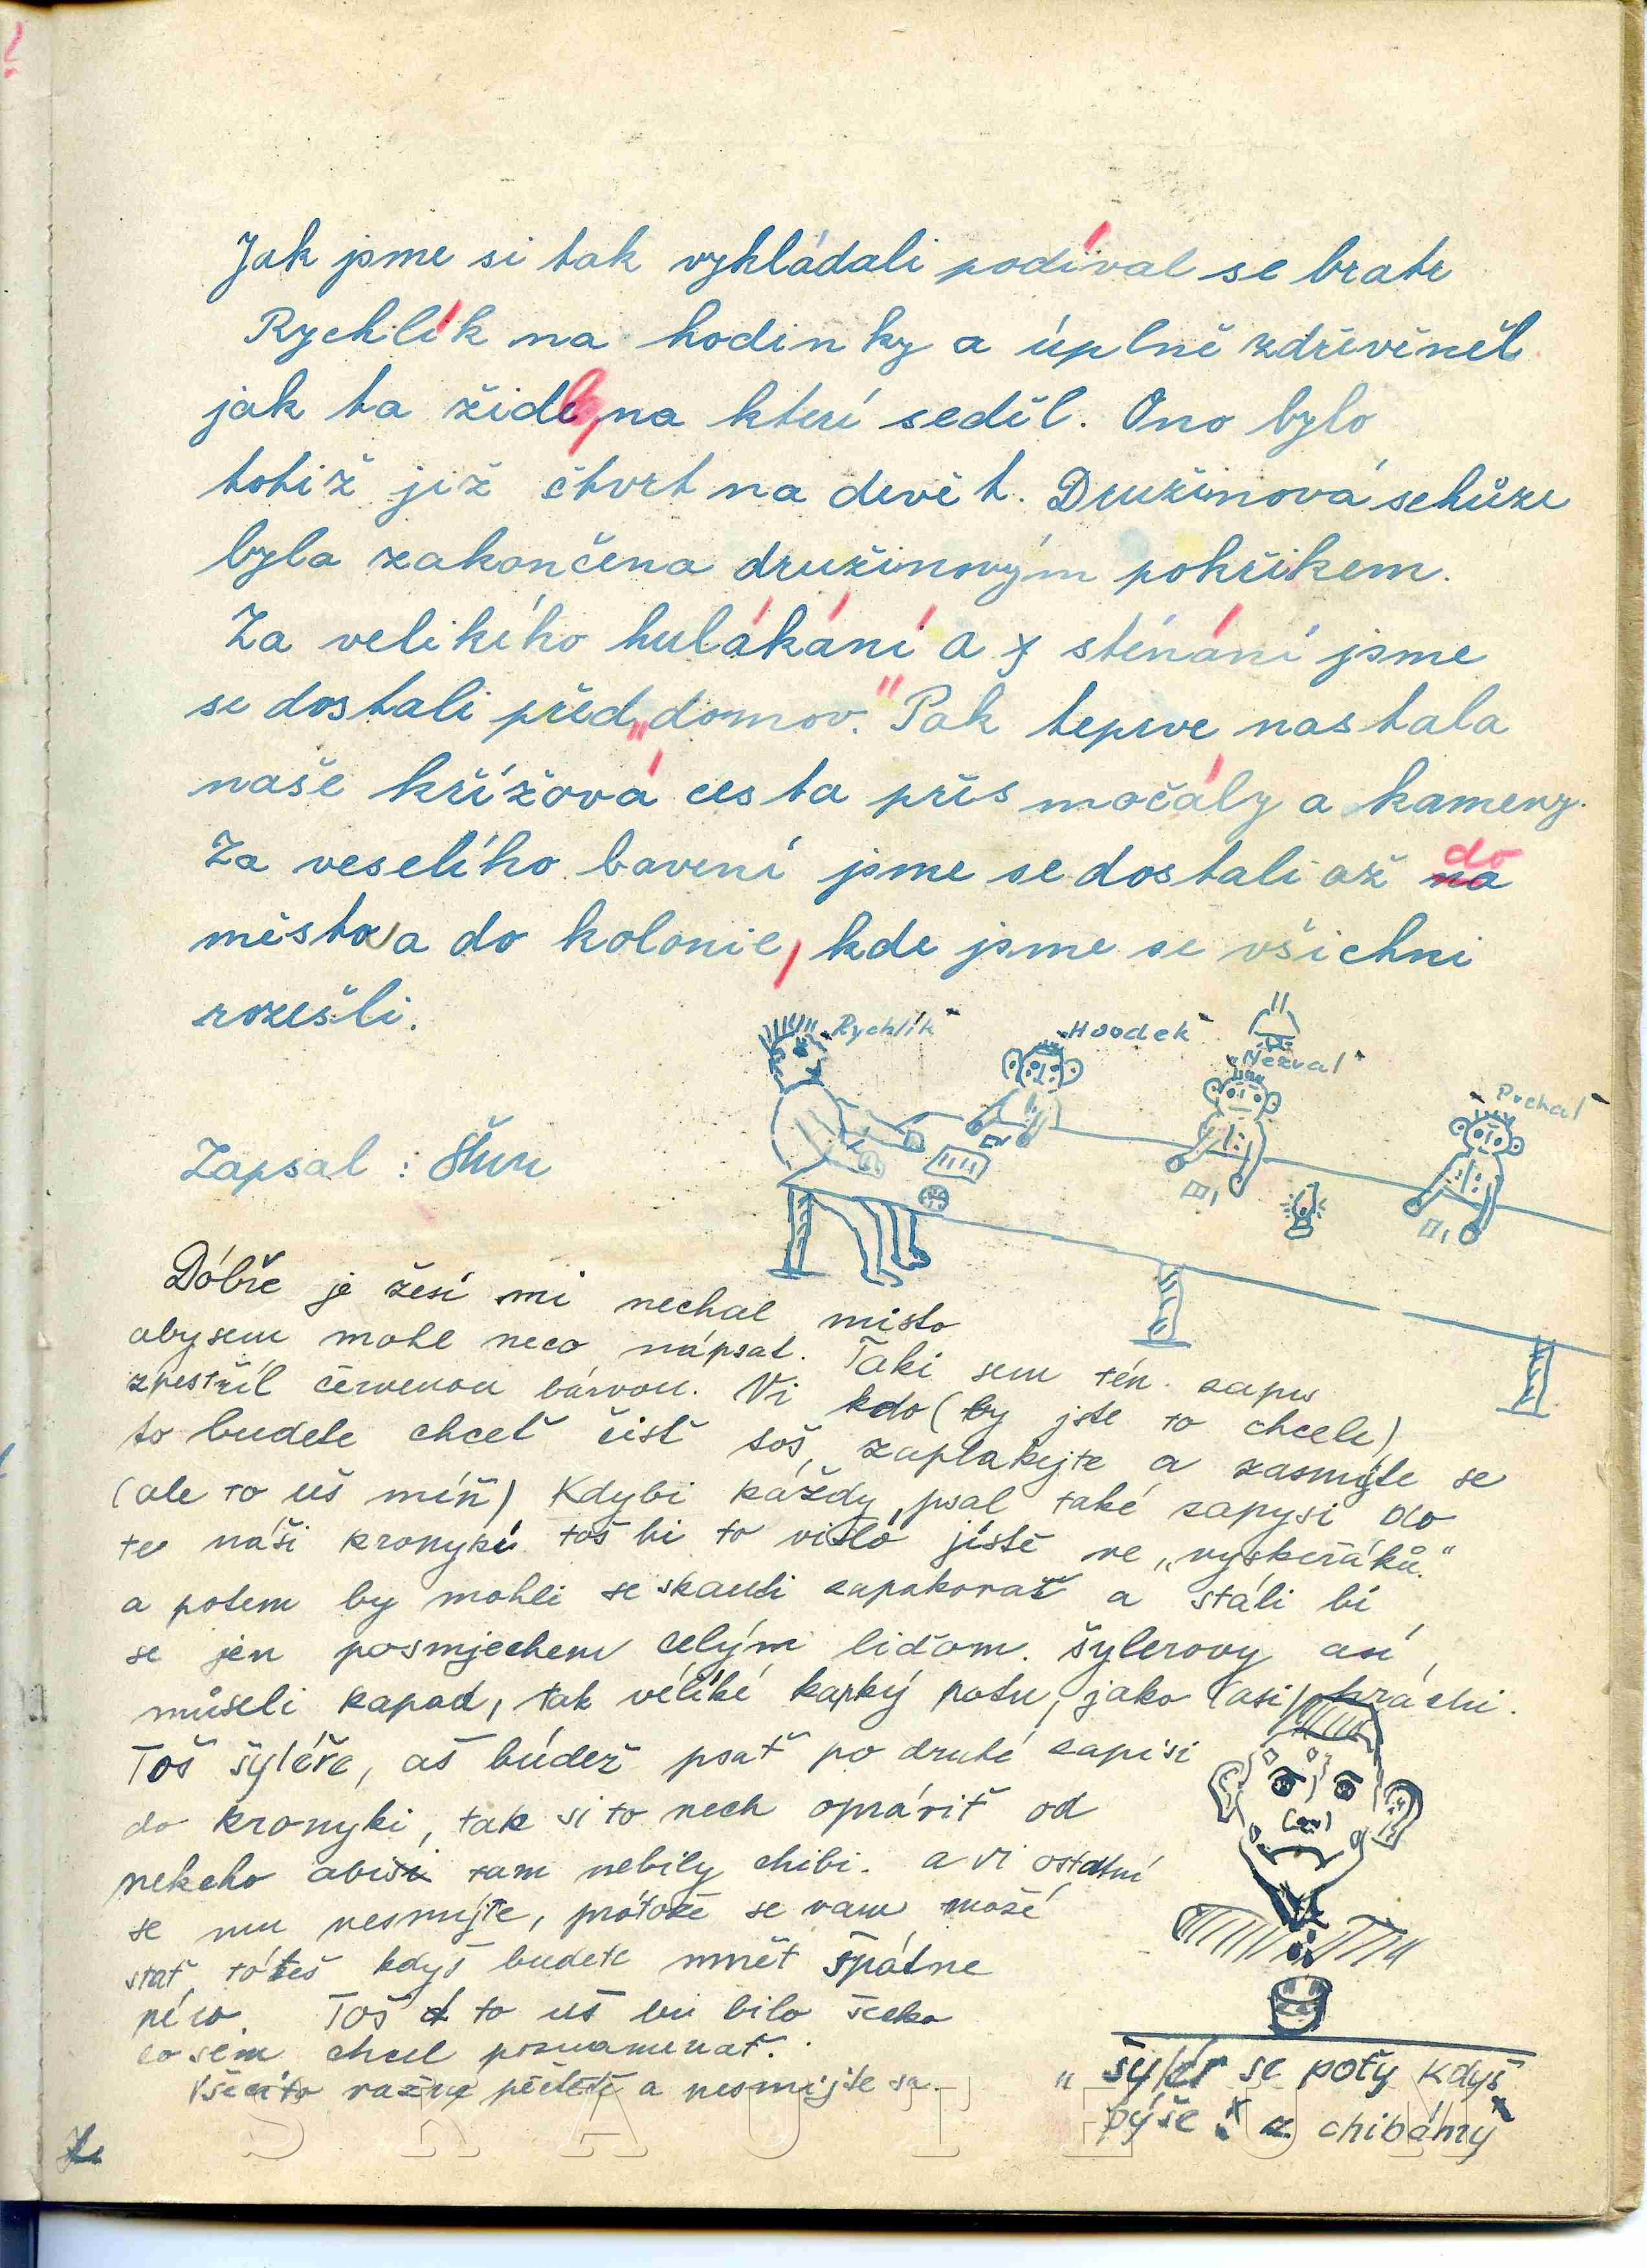 Jak jsme si tak vykládali podíval se bratr
Rychlík na hodinky a úplně zdřěvěněl
jak ta židle, na kteri seděl. Ono bylo
totiž již čtvrt na devět. Družinová schůze
byla zakončena družinovým pokřikem.
Za velikého hulákání a sténání jsme
se dostali před „domov." Pak teprve nastala
naše křížová cesta přes močály a kameny.
Za veselího bavení jsme se dostali až na do
města a do kolonie, kde jsme se všichni
rozešli.
„Rychlík"
„Hvodek"
„Nezval"
„Puchal"
Zapsal :
Dóbře je žesi mi nechal misto
abysem mohl neco nápsat. Taki sem tén zapis
zpestřil červenou bárvou. Vi kdo (by jste to chceli)
to budete chceť čisť toš, zaplakejte a zasmijte se
(ale to uš míň) Kdybi káždy psal také zapysi do
te náši kronyki toš bi to višlo jistě ve „vyskeřáků."
a potem by mohli se skauti zapakovať a stáli bi
se jen posmjechem celým liďom. šylerovy asi,
můseli kapad, tak véliké kapký potu, jako (asi) hráchi.
Toš šyléře, aš búdeš psať po druhé zapisi
do kronyki, tak si to nech opráviť od
nekeho abisi tam nebily chibi. a vi ostatní
se mu nesmijte, prótože se vam može
stať tóteš kdyš budete mnět špátne
péro. Toš to uš bi bilo šecko
co sem chcel poznamenať.
Všecito važne péčtěte a nesmijte sa.
„šylér se poťy kdyš
pýše „z chibámy"
S K A U T E U M